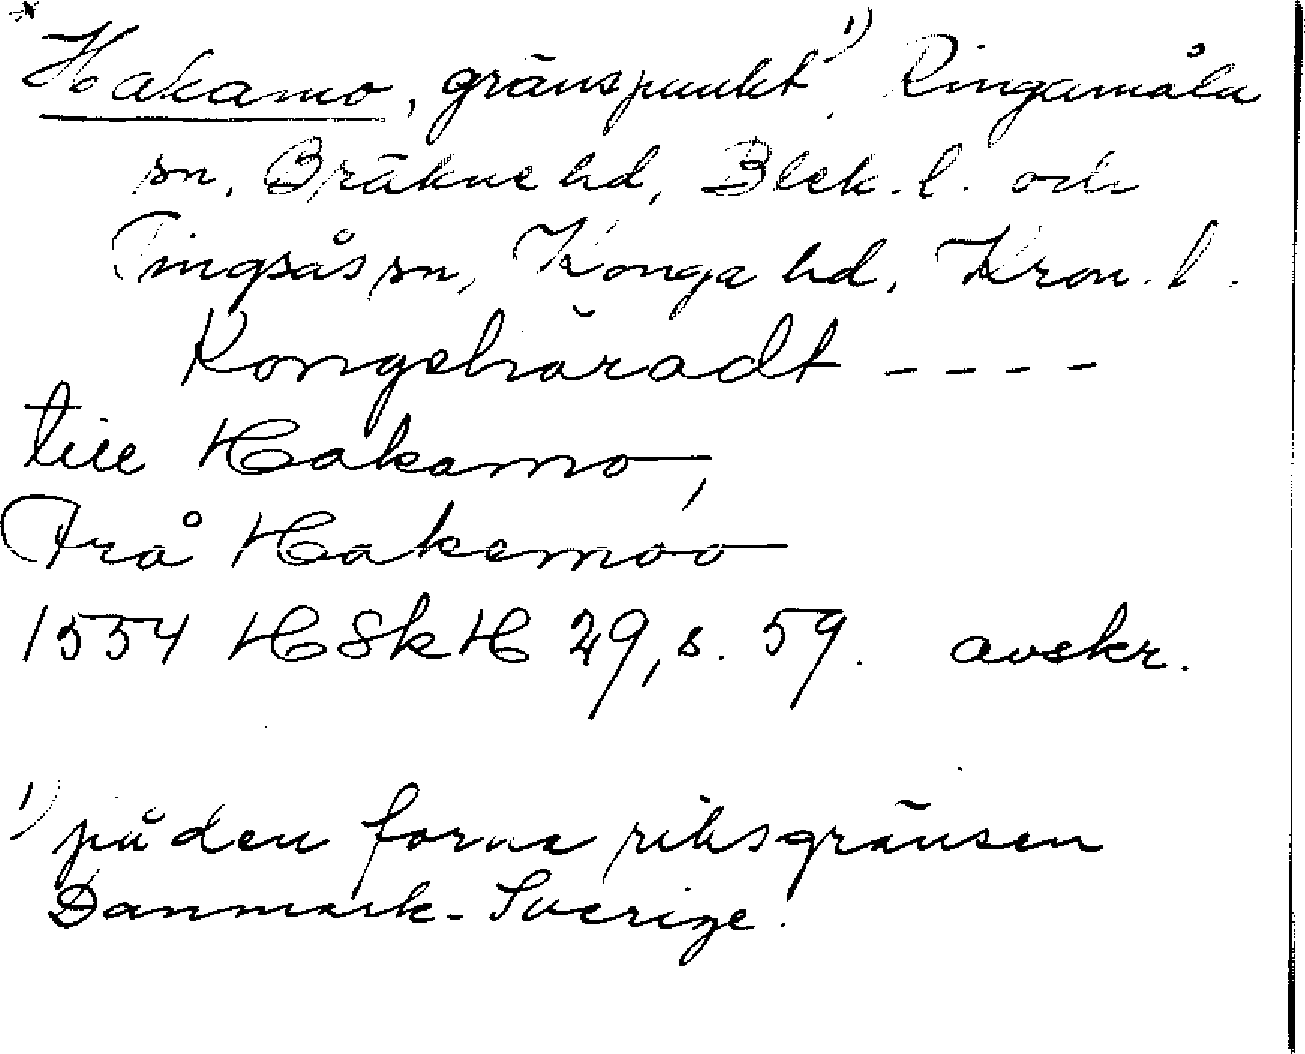 *Hakamo, gränspunkt 1) Ringamåla
sn, Bräkne hd, Blek. l. och
Tingsås sn, Konga hd, Kron. l.
Kongehäradt - - - -
till Hakamo,
Frå Hakemoo
1554 HSkH 29, s. 59. avskr.
1) på den forna riksgränsen
Danmark-Sverige.